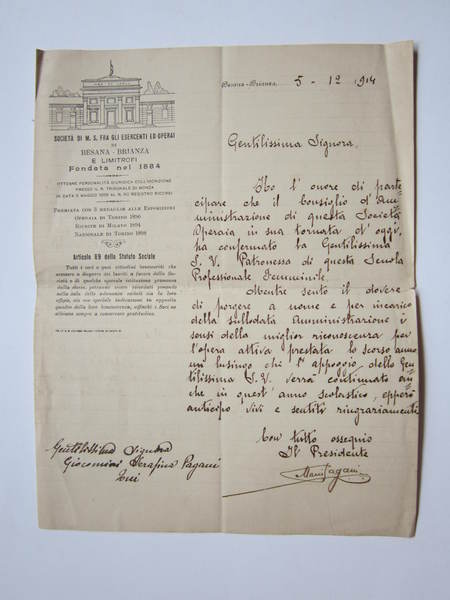 SOCIETÀ DI M. S. FRA GLI ESERCENTI ED OPERAI
DI
BESANA-BRIANZA
E LIMITROFI
Fondata nel 1884
OTTENNE PERSONALITÀ GIURIDICA COLL'ISCRIZIONE
PRESSO IL R. TRIBUNALE DI MONZA
PREMIATA CON 3 MEDAGLIE ALLE ESPOSIZIONI
OPERAIA DI TORINO 1890
RIUNITE DI MILANO 1894
NAZIONALE DI TORINO 1898
Articolo 69 dello Statuto Sociale
Tutti i soci e quei cittadini benemeriti che
Besana-Brianza, 5 - 12 1914
Gentilissima Signora,
Ho l'onore di parte
cipare che il Consiglio d'Am=
ministrazione di questa Società
Operaia in sua tornata d'oggi,
ha confermato la Gentilissima
S. V. Patronessa di questa Scuola
Professionale Femminile.
Mentre sento il dovere
di porgere a nome e per incarico
della sullodata Amministrazione i
sensi della miglior riconoscenza per
l'opera attiva prestata lo scorso anno
mi lusingo che l'appoggio dello Gen
tilissima S. V. verrà continuato an=
che in quest'anno scolastico, epperò
anticipo vivi e sentiti ringraziamenti
Con tutto ossequio
Il Presidente
Pagani
Gentilissima Signora
Giacomini Serafina Pagani